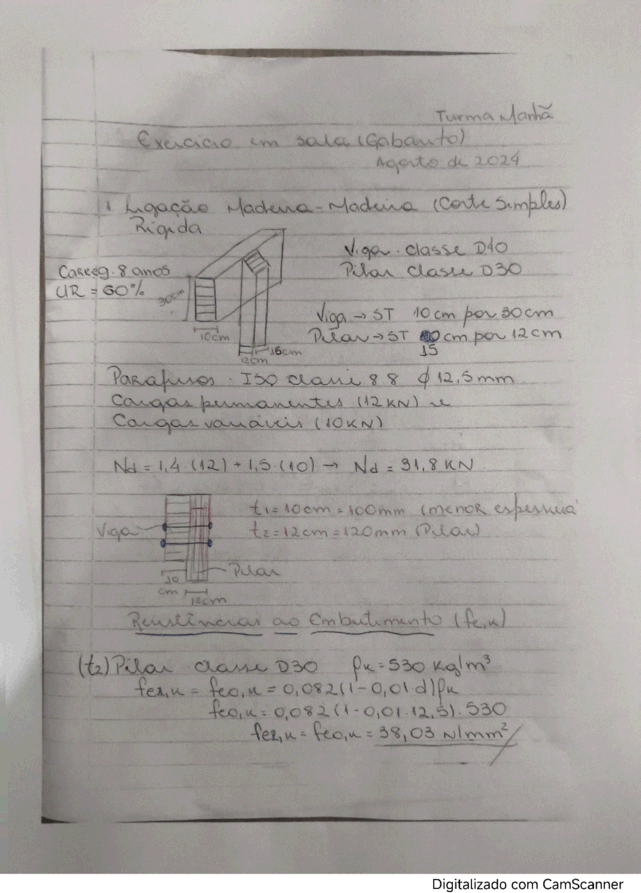 Turma Manhã
Exercício em sala (Gabarito)
Agosto de 2024
1. Ligação Madeira-Madeira (Corte Simples)
Rígida
Viga. classe D40
Carreg. 8 anos
Pilar classe D30
UR = 60%
30cm
Viga → ST 10 cm por 30cm
10cm
Pilar → ST cm por 12 cm
15
15cm
12cm
Parafusos. ISO classe 8.8 ϕ 12,5 mm
Cargas permanentes (12 KN) e
Cargas variáveis (10KN)
Nd = 1,4 (12) + 1,5 (10) → Nd = 31,8 KN
t1 = 10cm = 100mm (menor espessura
Viga
t2 = 12cm = 120mm (Pilar)
Pilar
10
cm
12cm
Resistências ao Embutimento (fe,k)
(t2) Pilar classe D30 ρk = 530 Kg/m³
fe2,k = fe0,k = 0,082 (1 - 0,01 d) ρk
fe0,k = 0,082 (1 - 0,01 . 12,5) . 530
fe2,k = fe0,k = 38,03 N/mm²
Digitalizado com CamScanner